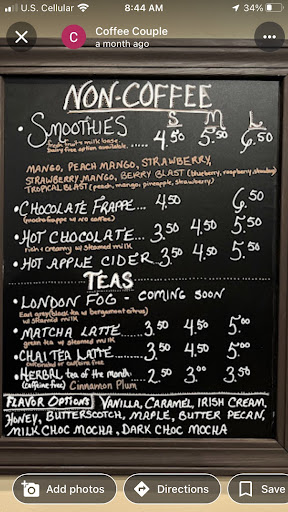 U.S. Cellular 8:44 AM 34%
C Coffee Couple
a month ago
NON-COFFEE
S M L
• SMOOTHIES 4.50 5.50 6.50
fresh fruit & milk base....
Dairy free option available.
MANGO, PEACH MANGO, STRAWBERRY,
STRAWBERRY MANGO, BERRY BLAST (blueberry, raspberry, strawberry)
TROPICAL BLAST (peach, mango, pineapple, strawberry)
• CHOCOLATE FRAPPE... 4.50 6.50
(mocha frappe w no coffee)
• HOT CHOCOLATE... 3.50 4.50 5.50
rich & creamy w steamed milk
• HOT APPLE CIDER 3.50 4.50 5.50
TEAS
• LONDON FOG - COMING SOON
Earl grey (black tea w bergamont citrus)
w steamed milk
• MATCHA LATTE...... 3.50 4.50 5.00
green tea w steamed milk
• CHAI TEA LATTE...... 3.50 4.50 5.00
caffeinated or caffeine free
• HERBAL tea of the month... 2.50 3.00 3.50
(caffeine free) Cinnamon Plum
FLAVOR OPTIONS VANILLA, CARAMEL, IRISH CREAM,
HONEY, BUTTERSCOTCH, MAPLE, BUTTER PECAN,
MILK CHOC MOCHA, DARK CHOC MOCHA
Add photos Directions Save